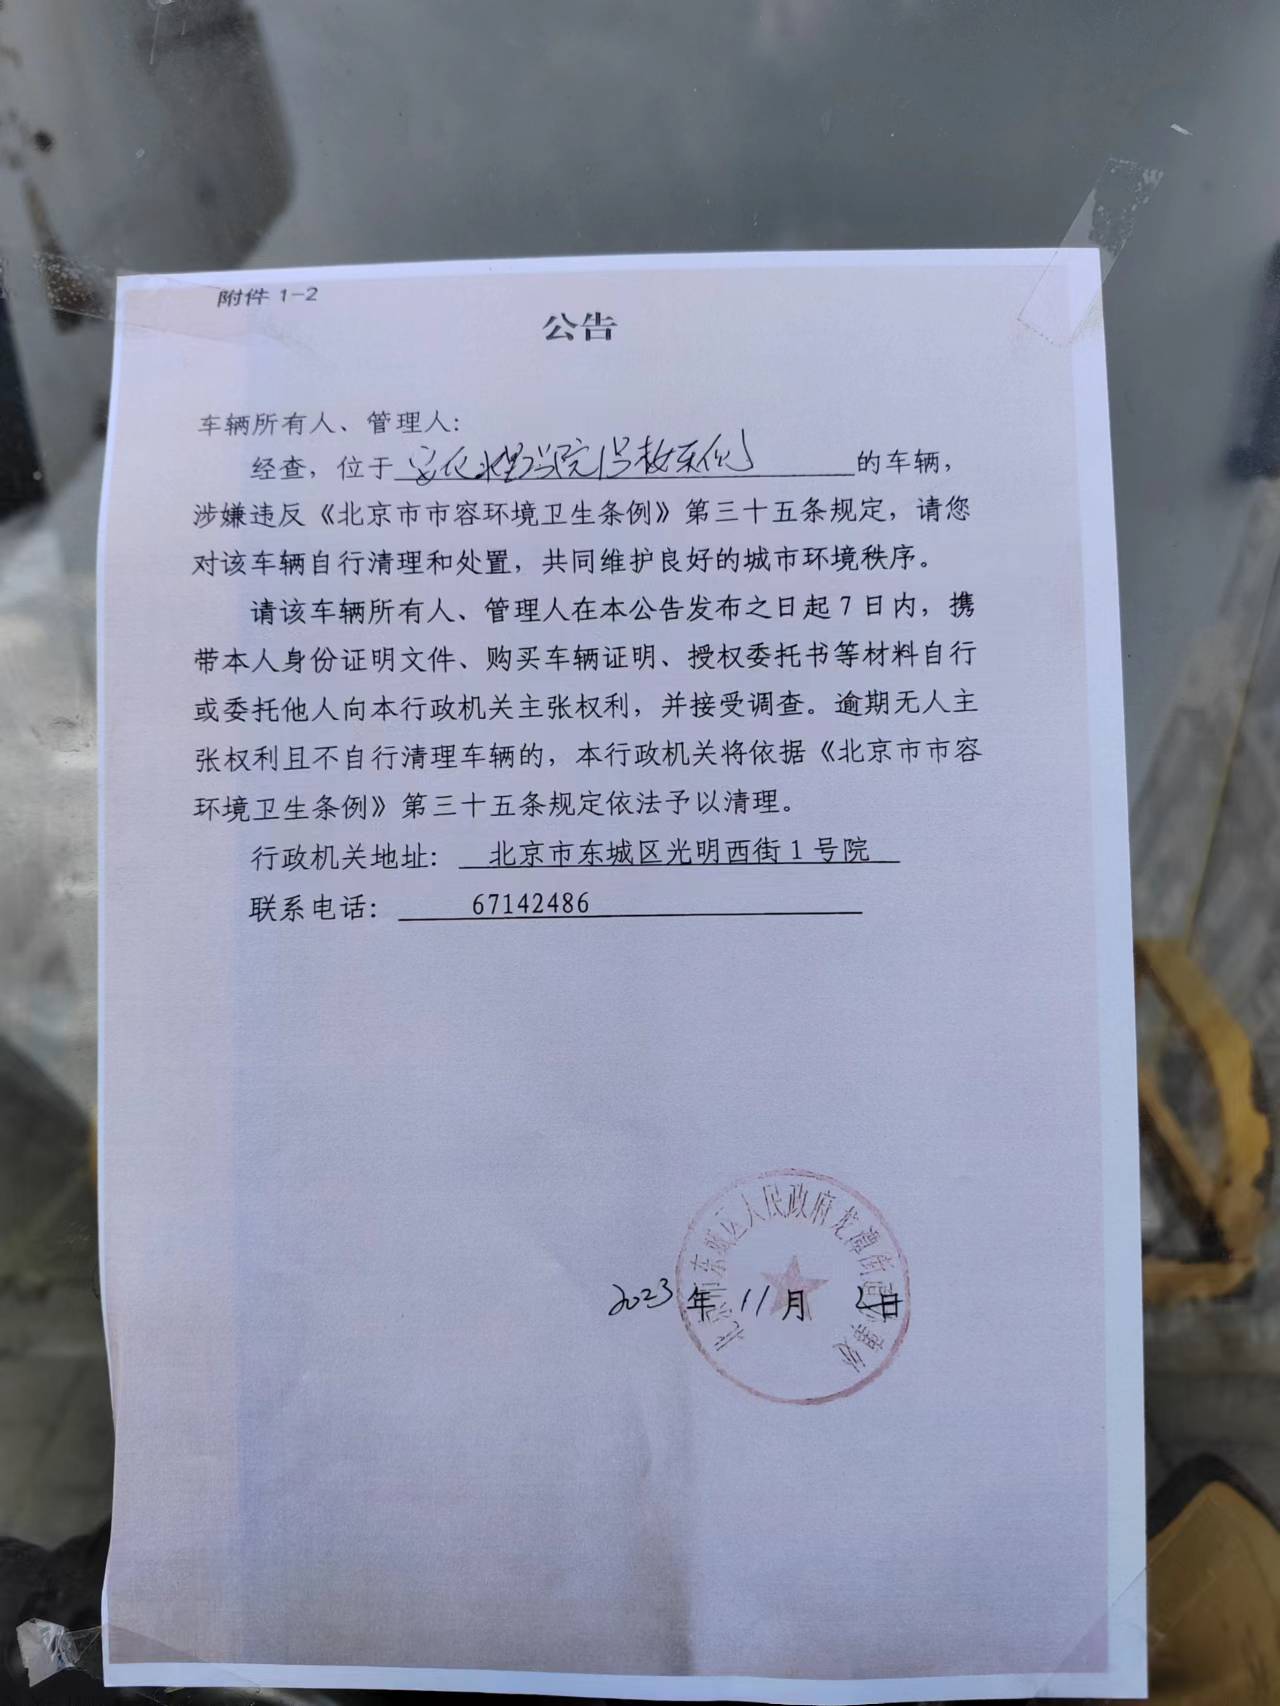 附件 1-2
公告
车辆所有人、管理人：
经查，位于 的车辆，
涉嫌违反《北京市市容环境卫生条例》第三十五条规定，请您
对该车辆自行清理和处置，共同维护良好的城市环境秩序。
请该车辆所有人、管理人在本公告发布之日起 7 日内，携
带本人身份证明文件、购买车辆证明、授权委托书等材料自行
或委托他人向本行政机关主张权利，并接受调查。逾期无人主
张权利且不自行清理车辆的，本行政机关将依据《北京市市容
环境卫生条例》第三十五条规定依法予以清理。
行政机关地址： 北京市东城区光明西街 1 号院
联系电话： 67142486
北京市东城区人民政府龙潭街道办事处
2023 年 11 月 2日